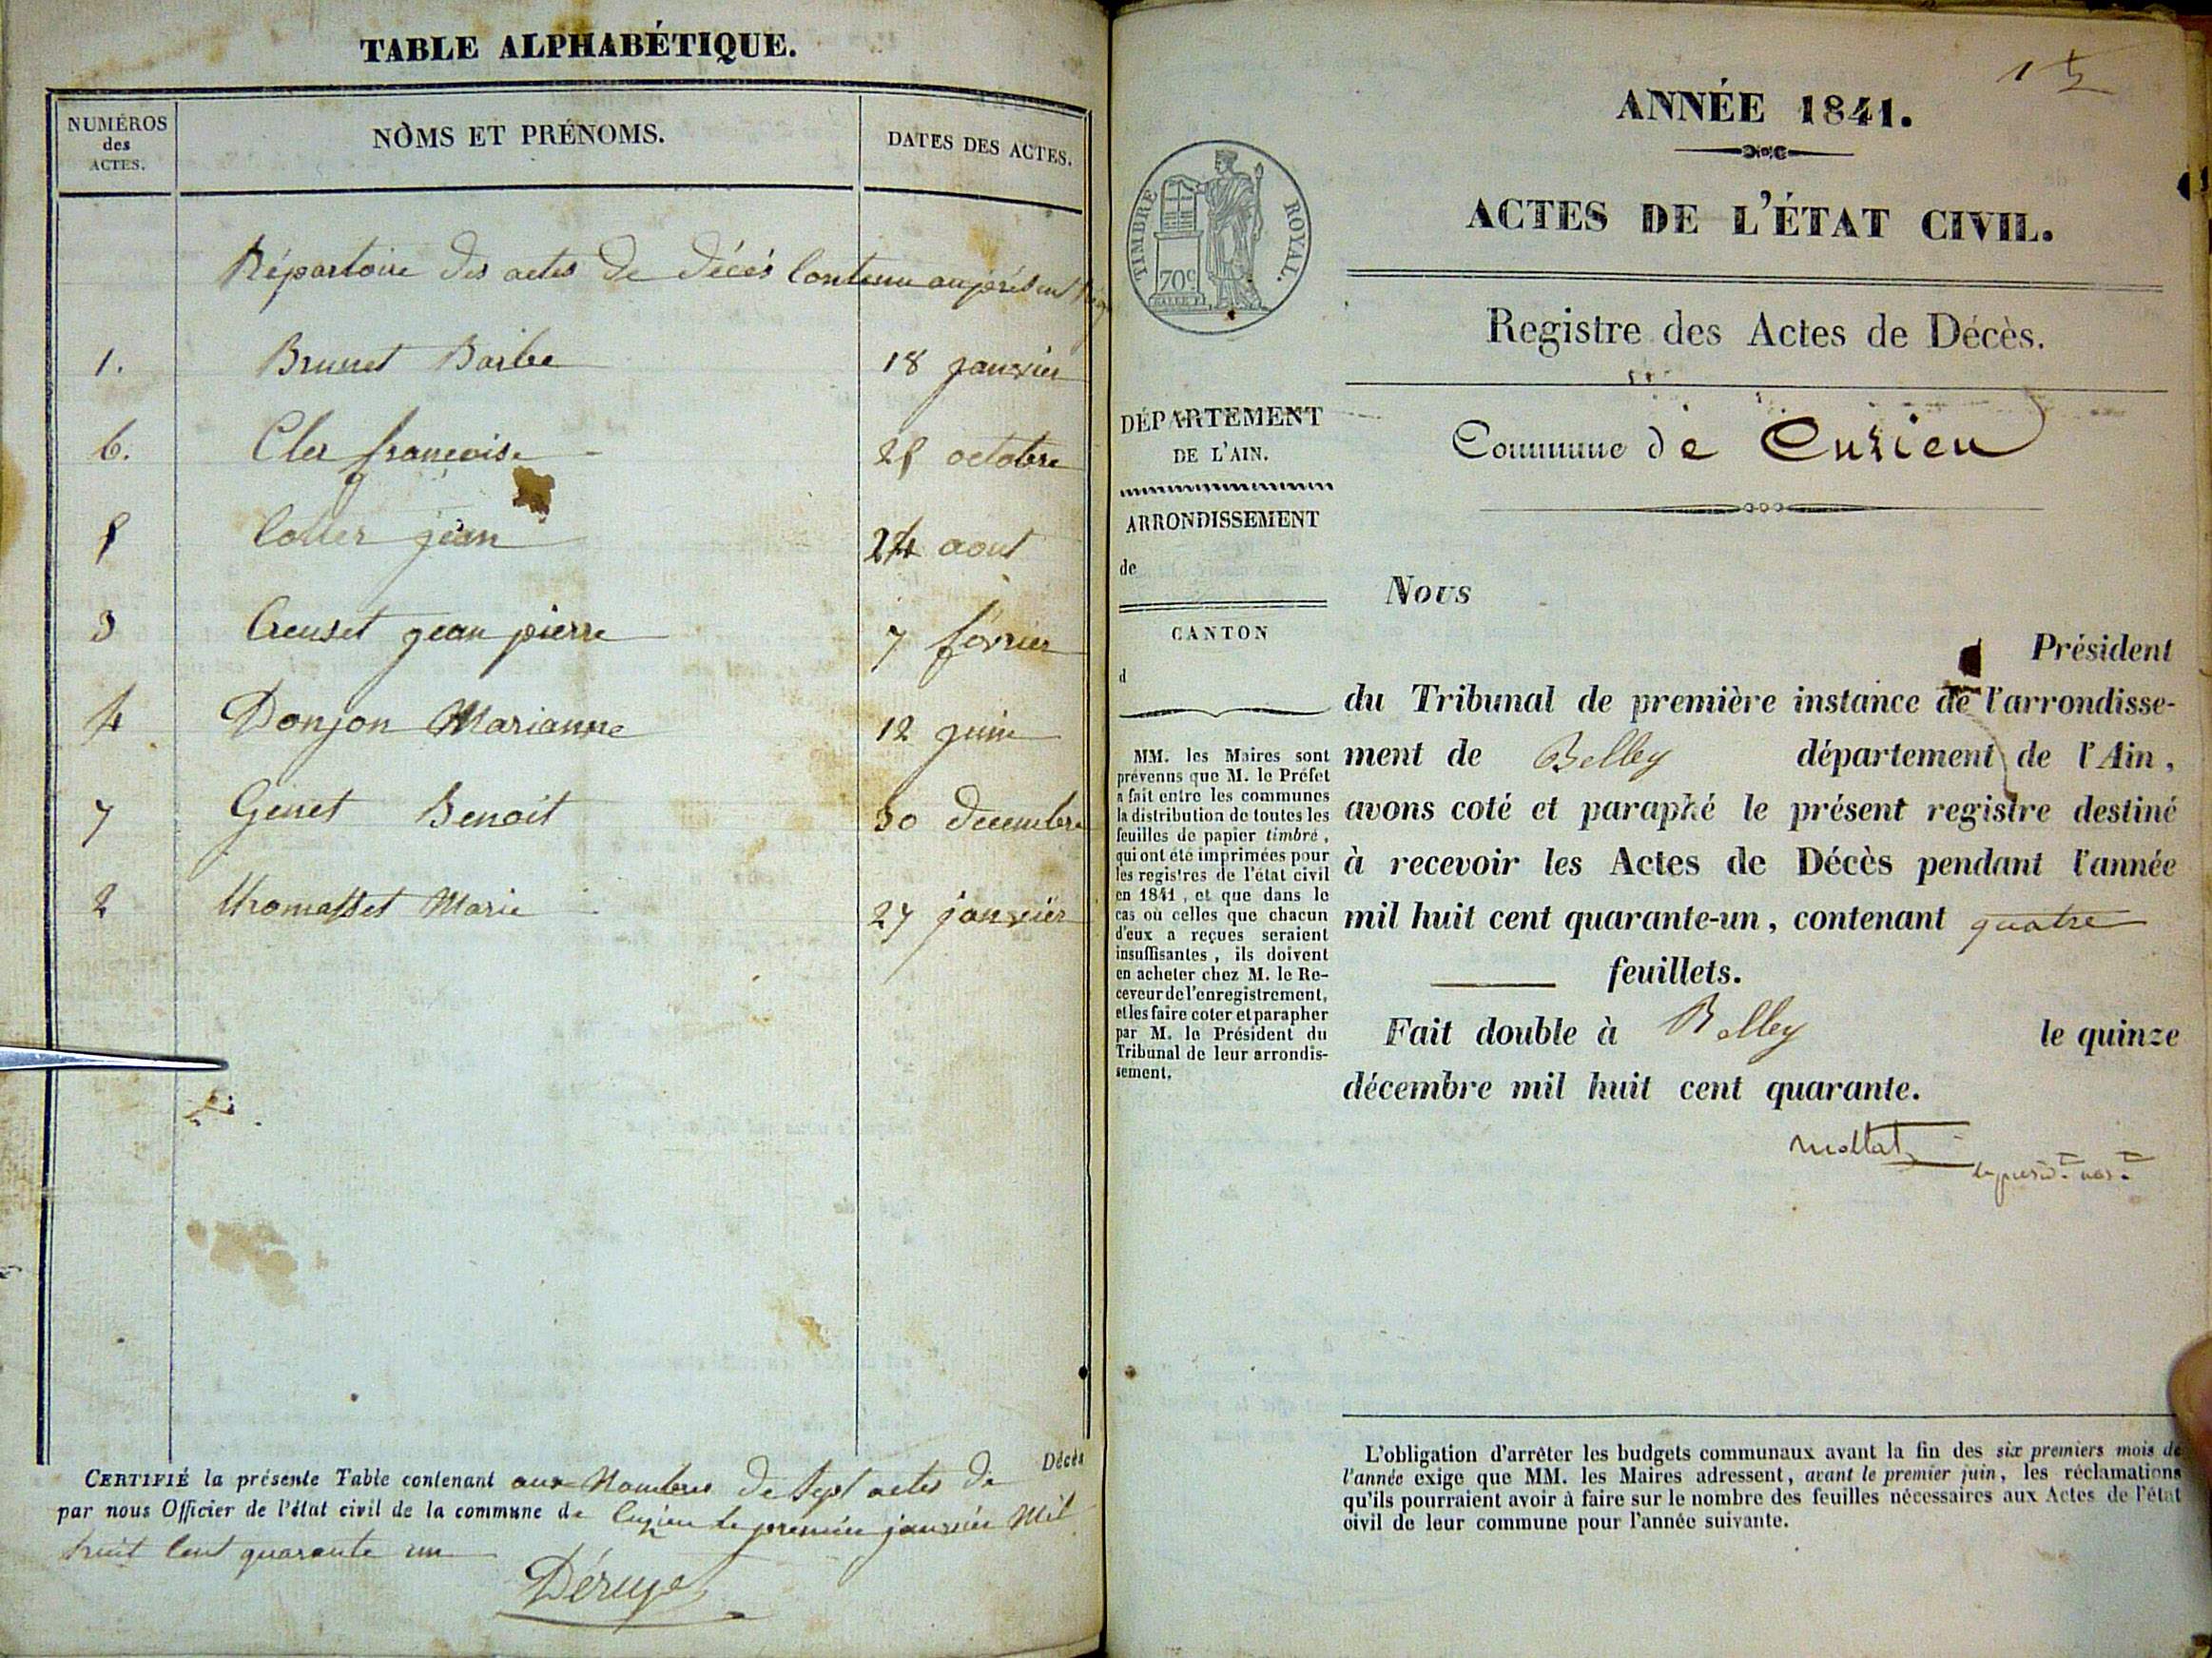 TABLE ALPHABÉTIQUE.
NUMÉROS
des
ACTES.
NOMS ET PRÉNOMS.
DATES DES ACTES.
Répertoire des actes de décés Contenu au présent
1. Brunet Barbe 18 janvier
6. Cler françoise 28 octobre
jean 24 aout
3 Creuset jean pierre 7 février
4 Donjon Marianne 12 juin
7 Genet Benoit 30 decembre
2 thomasset Marie 27 janvier
CERTIFIÉ la présente Table contenant aux Nombres de Sept actes de Décès
par nous Officier de l'état civil de la commune de Cuzieu le premier janvier Mil
huit Cent quarante un
ANNÉE 1841.
ACTES DE L'ÉTAT CIVIL.
TIMBRE ROYAL.
70c
Registre des Actes de Décès.
DÉPARTEMENT
DE L'AIN.
ARRONDISSEMENT
de
CANTON
d
MM. les Maires sont
prévenus que M. le Préfet
a fait entre les communes
la distribution de toutes les
feuilles de papier timbré,
qui ont été imprimées pour
les registres de l'état civil
en 1841, et que dans le
cas où celles que chacun
d'eux a reçues seraient
insuffisantes, ils doivent
en acheter chez M. le Re-
ceveur de l'enregistrement,
et les faire coter et parapher
par M. le Président du
Tribunal de leur arrondis-
sement.
Commune de Cuzieu
Nous
Président
du Tribunal de première instance de l'arrondisse-
ment de Belley département de l'Ain,
avons coté et paraphé le présent registre destiné
à recevoir les Actes de Décès pendant l'année
mil huit cent quarante-un, contenant quatre
feuillets.
Fait double à Belley le quinze
décembre mil huit cent quarante.
L'obligation d'arrêter les budgets communaux avant la fin des six premiers mois de
l'année exige que MM. les Maires adressent, avant le premier juin, les réclamations
qu'ils pourraient avoir à faire sur le nombre des feuilles nécessaires aux Actes de l'état
civil de leur commune pour l'année suivante.